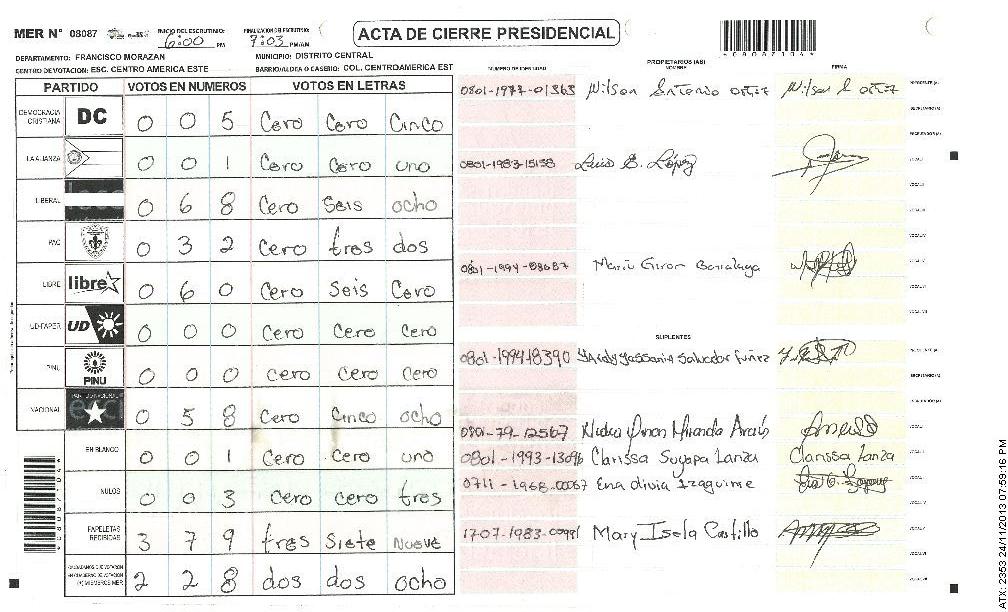 MER N° 08087 INICIO DEL ESCRUTINIO: 6:00 PM FINALIZACION DEL ESCRUTINIO: 7:03 PM/AM
ACTA DE CIERRE PRESIDENCIAL
DEPARTAMENTO: FRANCISCO MORAZAN MUNICIPIO: DISTRITO CENTRAL
CENTRO DE VOTACION: ESC. CENTRO AMERICA ESTE BARRIO/ALDEA O CASERIO: COL. CENTROAMERICA EST
PARTIDO VOTOS EN NUMEROS VOTOS EN LETRAS
DEMOCRACIA CRISTIANA DC 0 0 5 Cero Cero Cinco
LA ALIANZA 0 0 1 Cero Cero uno
LIBERAL 0 6 8 Cero Seis ocho
PAC 0 3 2 Cero tres dos
LIBRE libre 0 6 0 Cero Seis Cero
UD-FAPER UD 0 0 0 Cero Cero Cero
PINU PINU 0 0 0 Cero Cero Cero
NACIONAL 0 5 8 Cero Cinco ocho
EN BLANCO 0 0 1 Cero Cero uno
NULOS 0 0 3 Cero Cero tres
PAPELETAS RECIBIDAS 3 7 9 tres Siete Nueve
CIUDADANOS QUE VOTARON EN CUADERNO DE VOTACION (+) MIEMBROS MER 2 2 8 dos dos ocho
PROPIETARIOS (AS)
NUMERO DE IDENTIDAD NOMBRE FIRMA
0801-1977-01363 Nilson Antonio
0801-1983-15158 Luis E. López
0801-1994-08687 Mario Giron
SUPLENTES
0801-1994-18390 Salvador
0801-79-12567 Miranda
0801-1993-13096 Clarissa Suyapa Lanza Clarissa Lanza
0711-1968-00067 Ena
1707-1983-00991 Mary Isela Castillo
ATX: 2353 24/11/2013 07:59:16 PM